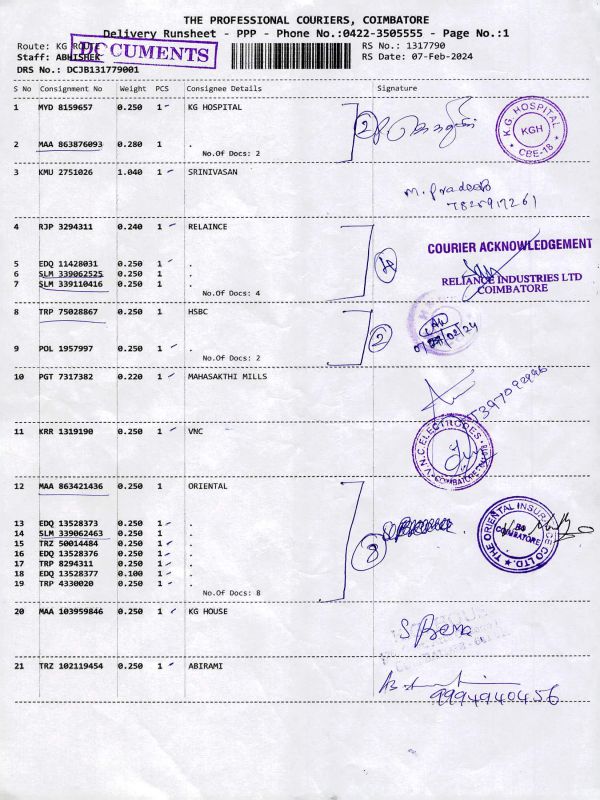 THE PROFESSIONAL COURIERS, COIMBATORE
Delivery Runsheet - PPP - Phone No.:0422-3505555 - Page No.:1
Route: KG ROUTE
DOCUMENTS
RS No.: 1317790
Staff: ABHISHEK
RS Date: 07-Feb-2024
DRS No.: DCJB131779001
S No Consignment No Weight PCS Consignee Details Signature
1 MYD 8159657 0.250 1 KG HOSPITAL
2
K.G. HOSPITAL
KGH
CBE-18
2 MAA 863876093 0.280 1 .
No.Of Docs: 2
3 KMU 2751026 1.040 1 SRINIVASAN
M. Pradeep
4 RJP 3294311 0.240 1 RELAINCE
COURIER ACKNOWLEDGEMENT
5 EDQ 11428031 0.250 1 .
6 SLM 339062525 0.250 1 .
7 SLM 339110416 0.250 1 .
4
RELIANCE INDUSTRIES LTD
COIMBATORE
No.Of Docs: 4
8 TRP 75028867 0.250 1 HSBC
2
9 POL 1957997 0.250 1 .
No.Of Docs: 2
10 PGT 7317382 0.220 1 MAHASAKTHI MILLS
11 KRR 1319190 0.250 1 VNC
V.N.C. ELECTRODES
12 MAA 863421436 0.250 1 ORIENTAL
13 EDQ 13528373 0.250 1 .
14 SLM 339062463 0.250 1 .
15 TRZ 50014484 0.250 1 .
16 EDQ 13528376 0.250 1 .
17 TRP 8294311 0.250 1 .
18 EDQ 13528377 0.100 1 .
19 TRP 4330020 0.250 1 .
No.Of Docs: 8
8
THE ORIENTAL INSURANCE CO LTD.
BO
COIMBATORE
20 MAA 103959846 0.250 1 KG HOUSE
21 TRZ 102119454 0.250 1 ABIRAMI
9994940456